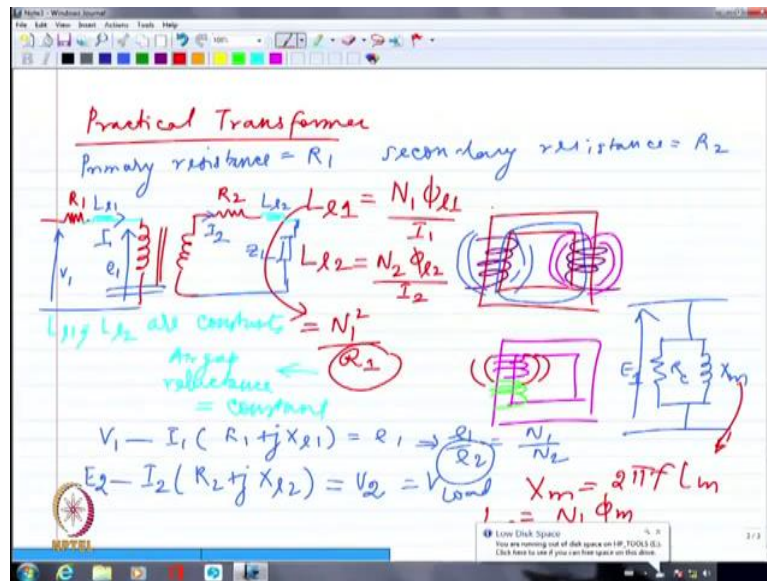 Note3 - Windows Journal
File Edit View Insert Actions Tools Help
Practical Transformer
Primary resistance = R1 secondary resistance = R2
R1 Ll1 R2 Ll2
I1 I2
v1 e1
Ll1 = N1 ϕl1 / I1
Ll2 = N2 ϕl2 / I2
= N1² / R1
Ll1 & Ll2 are constants
Air gap reluctance = constant
E1 Rc Xm
V1 - I1 ( R1 + j Xl1 ) = e1 ⇒ e1 / e2 = N1 / N2
E2 - I2 ( R2 + j Xl2 ) = V2 = VLoad
Xm = 2πf Lm
= N1 ϕm
NPTEL
Low Disk Space
You are running out of disk space on HP_TOOLS (E:).
Click here to see if you can free space on this drive.